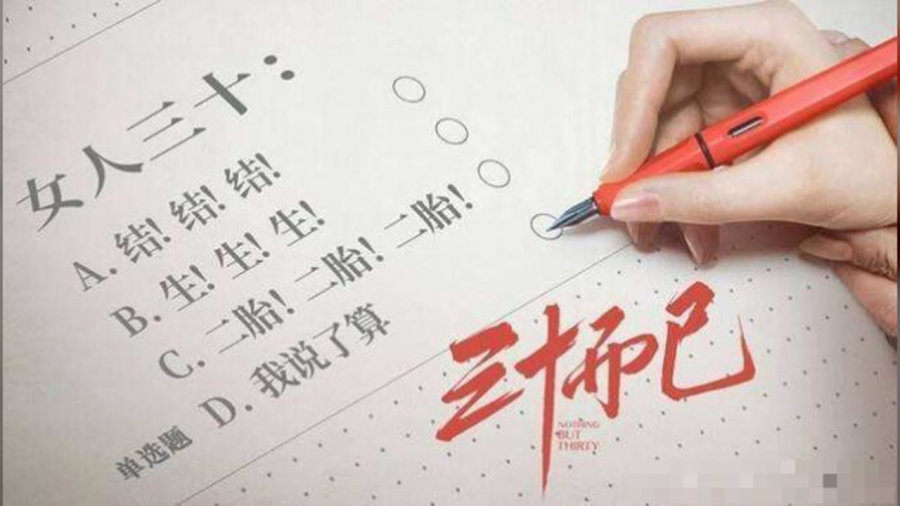 女人三十：
A. 结! 结! 结!
B. 生! 生! 生!
C. 二胎! 二胎! 二胎!
单选题 D. 我说了算
三十而已
NOTHING
BUT
THIRTY